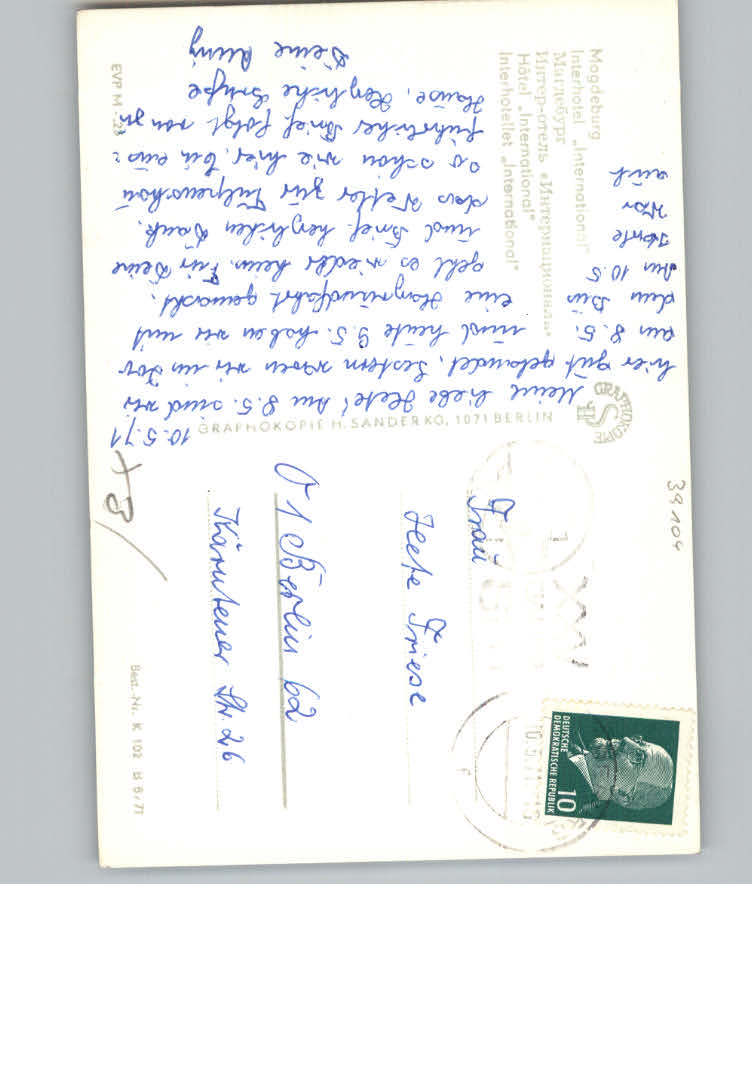 Magdeburg
Interhotel „International"
Магдебург
Интер-отель «Интернационал»
Hôtel „International"
Interhotellet „International"
EVP M
GRAPHOKOPIE
GRAPHOKOPIE H. SANDER KG, 1071 BERLIN
10.5.71
Meine liebe Hete! Am 8.5. sind wir
hier gut gelandet. Gestern waren wir im
am 8.5. und heute 9.5. haben wir mit
dem Bus eine Harzrundfahrt gemacht.
Am 10.5 geht es wieder heim. Für Deine
und Brief herzlichen Dank.
Heute
war das Wetter zur Tulpenschau
auch so schön wie hier. Ein aus-
führlicher Brief folgt von zu
Hause. Herzliche Grüße
Deine
Frau
Hete Friese
1 Berlin 62
Kärntener Str. 26
39104
DEUTSCHE
DEMOKRATISCHE REPUBLIK
10
Best.-Nr. K 102 B 6/71